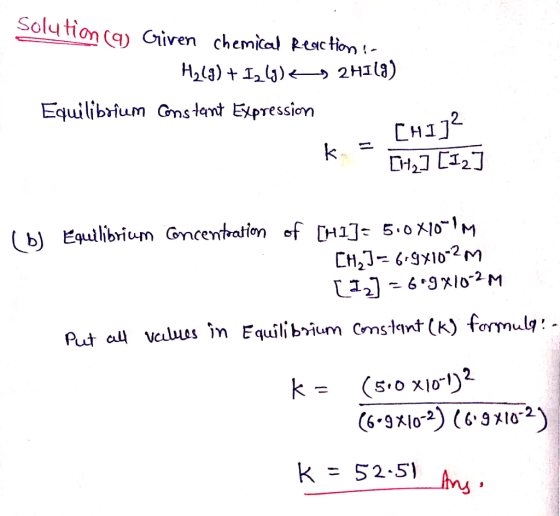 Solution (a) Given chemical Reaction :-
H₂(g) + I₂(g) ⟷ 2HI(g)
Equilibrium Constant Expression
k = [HI]² / [H₂] [I₂]
(b) Equilibrium Concentration of [HI] = 5.0 X10⁻¹ M
[H₂] = 6.9X10⁻² M
[I₂] = 6.9X10⁻² M
Put all values in Equilibrium Constant (K) formula: -
k = (5.0 X10⁻¹)² / (6.9X10⁻²) (6.9X10⁻²)
k = 52.51 Ans.